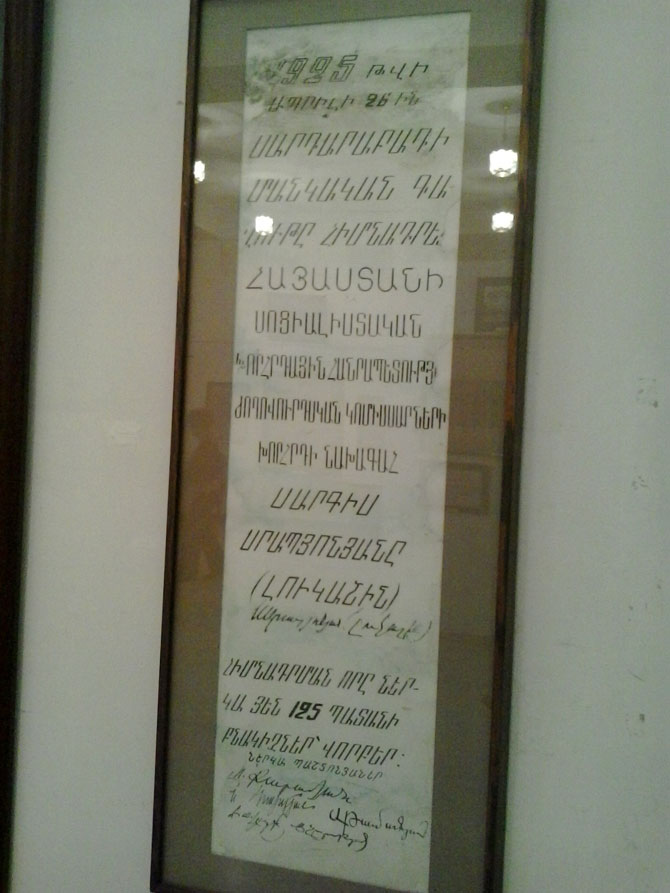 1925 ԹՎԻ
ԱՊՐԻԼԻ 26 ԻՆ
ՍԱՐԴԱՐԱԲԱԴԻ
ՄԱՆԿԱԿԱՆ ԳԱ
ՂՈՒԹԸ ՀԻՄՆԱԴՐԵՑ
ՀԱՅԱՍՏԱՆԻ
ՍՈՑԻԱԼԻՍՏԱԿԱՆ
ԽՈՐՀՐԴԱՅԻՆ ՀԱՆՐԱՊԵՏՈՒԹՅ
ԺՈՂՈՎՈՒՐԴԱԿԱՆ ԿՈՄԻՍԱՐՆԵՐԻ
ԽՈՐՀՐԴԻ ՆԱԽԱԳԱՀ
ՍԱՐԳԻՍ
ՍՐԱՊՅՈՆՅԱՆԸ
(ԼՈՒԿԱՇԻՆ)
ՀԻՄՆԱԴՐՄԱՆ ՈՐԸ ՆԵՐ-
ԿԱ ՅԵՆ 125 ՊԱՏԱՆԻ
ԲՆԱԿԻՉՆԵՐ՝ ՎՈՐԲԵՐ:
ՆԵՐԿԱ ՊԱՇՏՈՆՅԱՆԵՐ